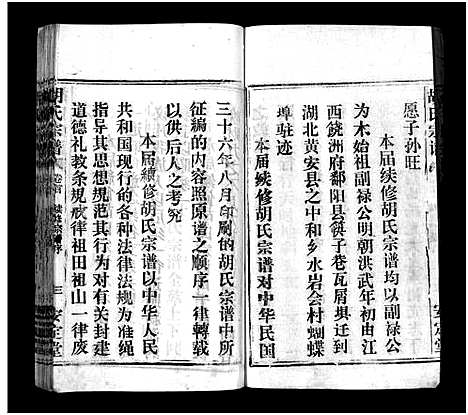 胡氏宗谱
愿子孙旺
本届续修胡氏宗谱均以副禄公
为木始祖副禄公明朝洪武年初由江
西饶洲府鄱阳县筷子巷瓦屑垻迁到
湖北黄安县之中和乡水岩会村蝴蝶
埠驻迹
本届续修胡氏宗谱对中华民国
安定堂
三十六年八月印刷的胡氏宗谱中所
征编的内容照原谱之顺序一律轉载
以供后人之考究
本届续修胡氏宗谱以中华人民
共和国现行的各种法律法规为准绳
指导其思想规范其行为对有关封建
道德礼教条规戒律祖田祖山一律废
胡氏宗谱
卷首
三
安定堂